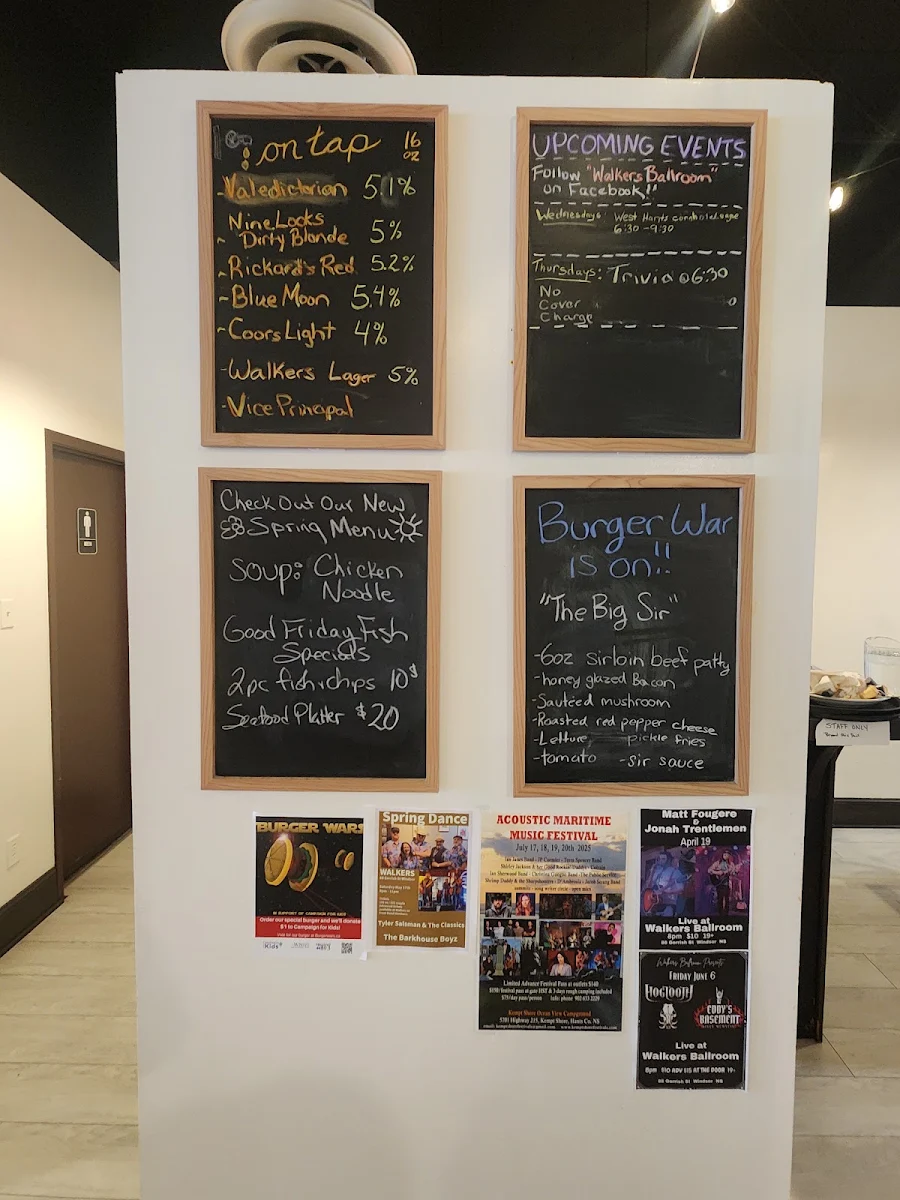 on tap 16 oz
-Valedictorian 5.1%
- Nine Locks
Dirty Blonde 5%
-Rickard's Red 5.2%
-Blue Moon 5.4%
-Coors Light 4%
-Walkers Lager 5%
-Vice Principal
UPCOMING EVENTS
Follow "Walkers Ballroom"
on Facebook!!
Wednesdays: West Hants cornhole League
6:30 -9:30
Thursdays: Trivia @6:30
No
Cover
Charge
Check Out Our New
Spring Menu
Soup: Chicken
Noodle
Good Friday Fish
Specials
2pc fish+chips 10$
Seafood Platter $20
Burger War
is on!!
"The Big Sir"
-6oz sirloin beef patty
-honey glazed Bacon
-Sautéed mushroom
-Roasted red pepper cheese
-Lettuce pickle fries
-tomato -sir sauce
STAFF ONLY
BURGER WARS
IN SUPPORT OF CAMPAIGN FOR KIDS
Order our special burger and we'll donate
$1 to Campaign for Kids!
Spring Dance
WALKERS
Tyler Salsman & The Classics
The Barkhouse Boyz
ACOUSTIC MARITIME
MUSIC FESTIVAL
July 17, 18, 19, 20th 2025
Limited Advance Festival Pass at outlets $140
$75/day pass/person Info: phone 902 633 2229
Kempt Shore Ocean View Campground
5301 Highway 215, Kempt Shore, Hants Co. NS
Matt Fougere
&
Jonah Trentlemen
April 19
Live at
Walkers Ballroom
8pm $10 19+
88 Gerrish St Windsor NS
Walkers Ballroom Presents
FRIDAY JUNE 6
HOGTOOTH
EDDY'S
BASEMENT
Live at
Walkers Ballroom
8pm $10 ADV $15 AT THE DOOR 19+
88 Gerrish St Windsor NS